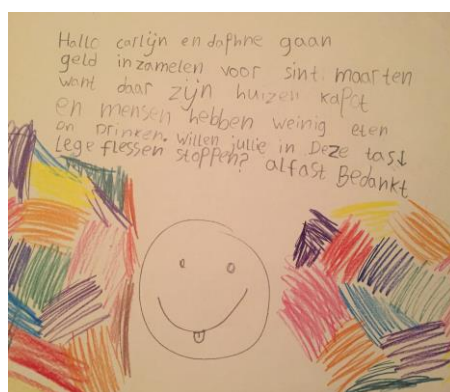 Hallo carlijn en daphne gaan
geld inzamelen voor sint maarten
want daar zijn huizen kapot
en mensen hebben weinig eten
On Drinken. willen julie in Deze tas↓
Lege flessen stoppen? alfast Bedankt